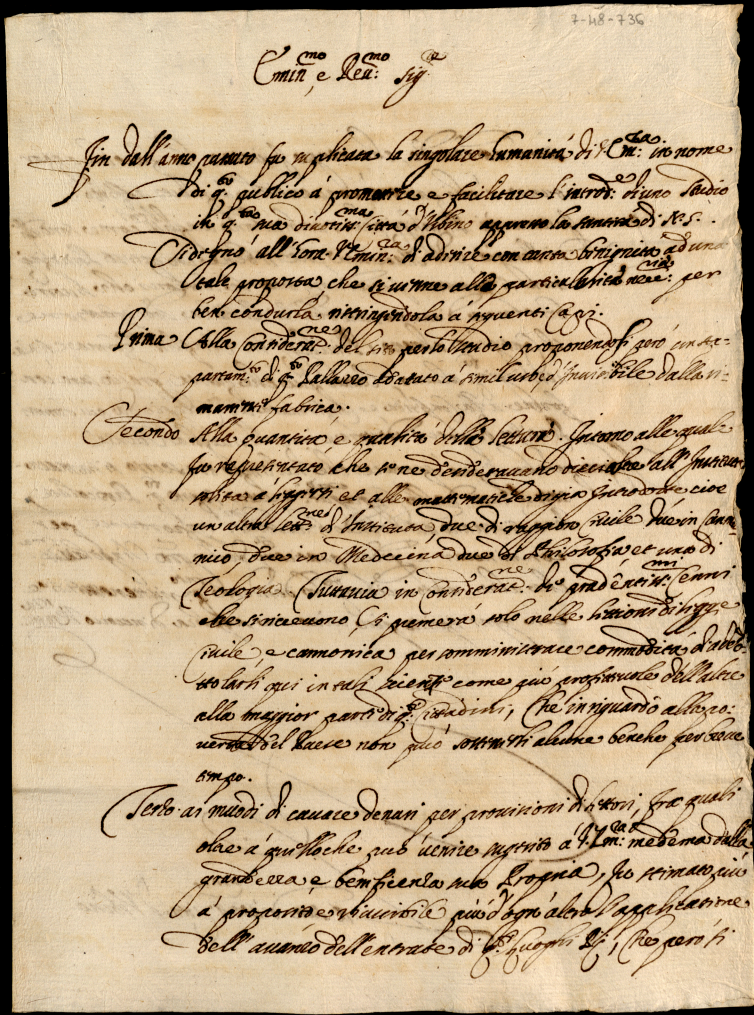 7-48-736
Emin.mo e Reu.mo sig.r
Fin dall'anno passato fu supplicata la singolare humanità di V. Em.za in nome
di q.to publico à promouere e facilitare l'introd.ne di uno studio
in q.ta sua diuotiss.ma città d'Urbino appresso la santità di N. S.
Si degnò all'hora V. Emin.za di adherire con tanta benignità ad una
tale proposta che si uenne alle particolarità neces.rie per
ben condurla ristringendola à seguenti Capi.
Prima Alla Considerat.ne del sito per lo studio proponendosi però un'ap-
partam.to di q.to Pallazzo adattato à simil uso ed diuisibile dalla ri-
manente fabrica.
Secondo Alla quantità e qualità delle letture. Intorno alle quale
fu rapresentato che se ne desiderauano dieci oltre all'Instituta
solita à leggersi et alle mattematiche cioè
un altra lett.ne d'Instituta due di raggion Ciuile due in Cano-
nico, due in Medecina due di Philosofia et uno di
Teologia. Tuttauia in Considerat.ne di prudentiss.mi Cenni
che si riceuono, si premerà solo nelle lettioni di legge
Ciuile, e cannonica per somministrare commodità d'addot-
torarsi qui in tali scienze come più profittuole dell'altre
alla maggior parte di q.ti Cittadini, Che in riguardo alla po-
uertà del Paese non può alcune benche per breue
tempo.
Terzo ai modi di cauare denari per prouisioni di lettori, fra quali
oltre à quello che può uenire sugerito à V. Em.za medema dalla
grandezza e beneficenza sua Propria, fu stimato più
à proposito e riuscibile più d'ogn'altro l'applicatione
dell'auanzo dell'entrate di Luoghi Pij, Che però si